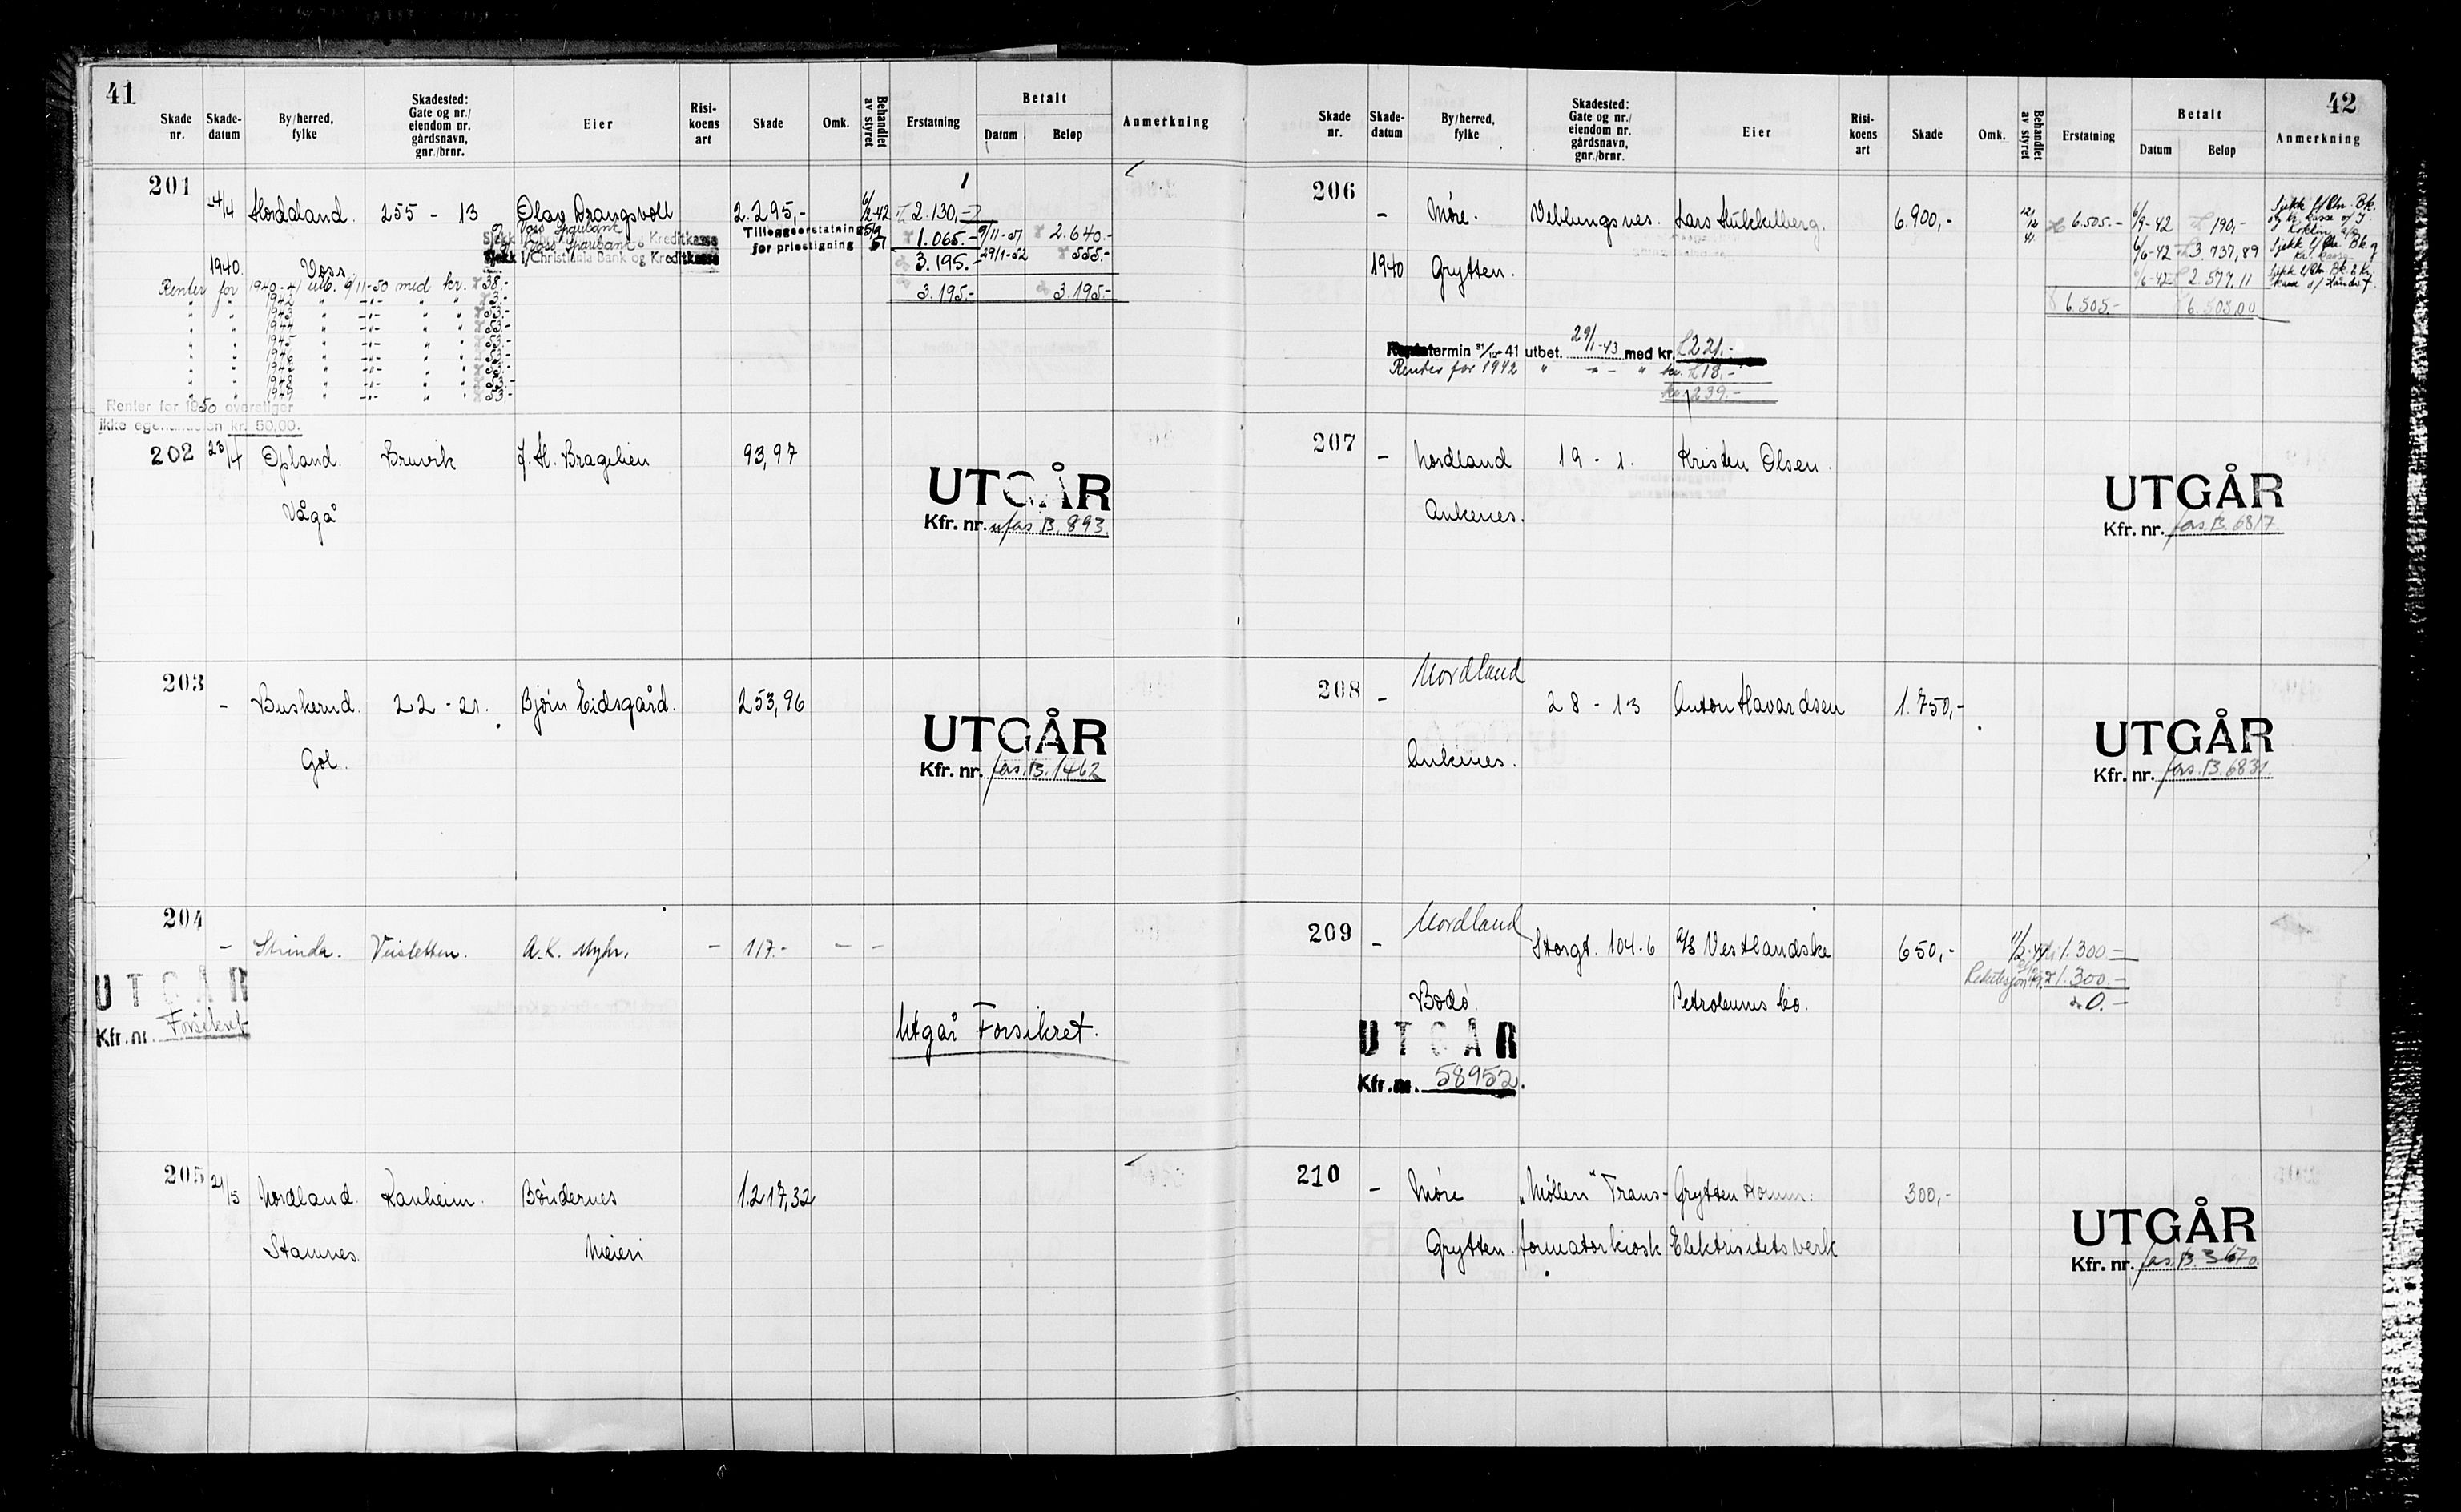 41
Skade nr. Skade-datum By/herred, fylke Skadested: Gate og nr./ eiendom nr. gårdsnavn, gnr./brnr. Eier Risi-koens art Skade Omk. Behandlet av styret Erstatning Betalt Datum Beløp Anmerkning
201 Hordaland. 255 - 13 Olav Drangsvoll 2.295,- 6/2-42 2.130,-
Voss Sparebank Tilleggserstatning 1.065.- 9/11- 2.640.-
og Kreditkasse for prisstigning
Sjekk 1/Christiania Bank og Kreditkasse 3.195.- 29/1-52 555.-
1940. Voss.
Renter for 1940-41 utb. 9/11-50 med kr. 38.- 3.195.- 3.195.-
" " 1942 " -"- " "
" " 1943 " -"- " " 53.-
" " 1944 " -"- " " 53.-
" " 1945 " -"- " " 53.-
" " 1946 " -"- " " 53.-
" " 1947 " -"- " " 53.-
" " 1948 " -"- " " 53.-
" " 1949 " -"- " " 53.-
Renter for 1950 overstiger
ikke egenandelen kr. 50,00.
202 23/4 Opland. Bruvik J. H. Bragelien 93,97
Vågå
UTGÅR
Kfr. nr. fors. B. 893
203 - Buskerud. 22 - 21. Bjørn Eidsgård. 253,96
Gol.
UTGÅR
Kfr. nr. fors. B. 1462
204 - Strinda. Veisletten. A. K. Myhr. - 117.- - -
UTGÅR
Kfr. nr. Forsikret
Utgår Forsikret.
205 21/5 Nordland. Ranheim. Bøndernes 1.217,32
Stamnes. Meieri
42
Skade nr. Skade-datum By/herred, fylke Skadested: Gate og nr./ eiendom nr. gårdsnavn, gnr./brnr. Eier Risi-koens art Skade Omk. Behandlet av styret Erstatning Betalt Datum Beløp Anmerkning
206 - Møre. Veblungsnes. Lars 6.900,- 12/12 41 6.505.- 6/9-42 190,-
6/6-42 3.737,89
1940 Grytten. 6/6-42 2.577,11
6.505.- 6.505.00
Rentetermin 31/12-41 utbet. 29/1-43 med kr. 221.-
Renter for 1942 " " - " kr. 18.-
kr. 239.-
207 - Nordland 19 - 1. Kristen Olsen.
Ankenes.
UTGÅR
Kfr. nr. fors. B. 6817
208 - Nordland 28 - 13 Anton Havardsen 1.750,-
Ankenes.
UTGÅR
Kfr. nr. fors. B. 6831.
209 - Nordland Storgt. 104.6 A/S Vestlandske 650,- 1.300.-
1.300.-
Bodø. Petroleums Co. 0.-
UTGÅR
Kfr. nr. 58952.
210 - Møre "Møllen" Trans- Grytten Komm. 300,-
Grytten. formatorkiosk Elektrisitetsverk
UTGÅR
Kfr. nr. fors. B. 3670.